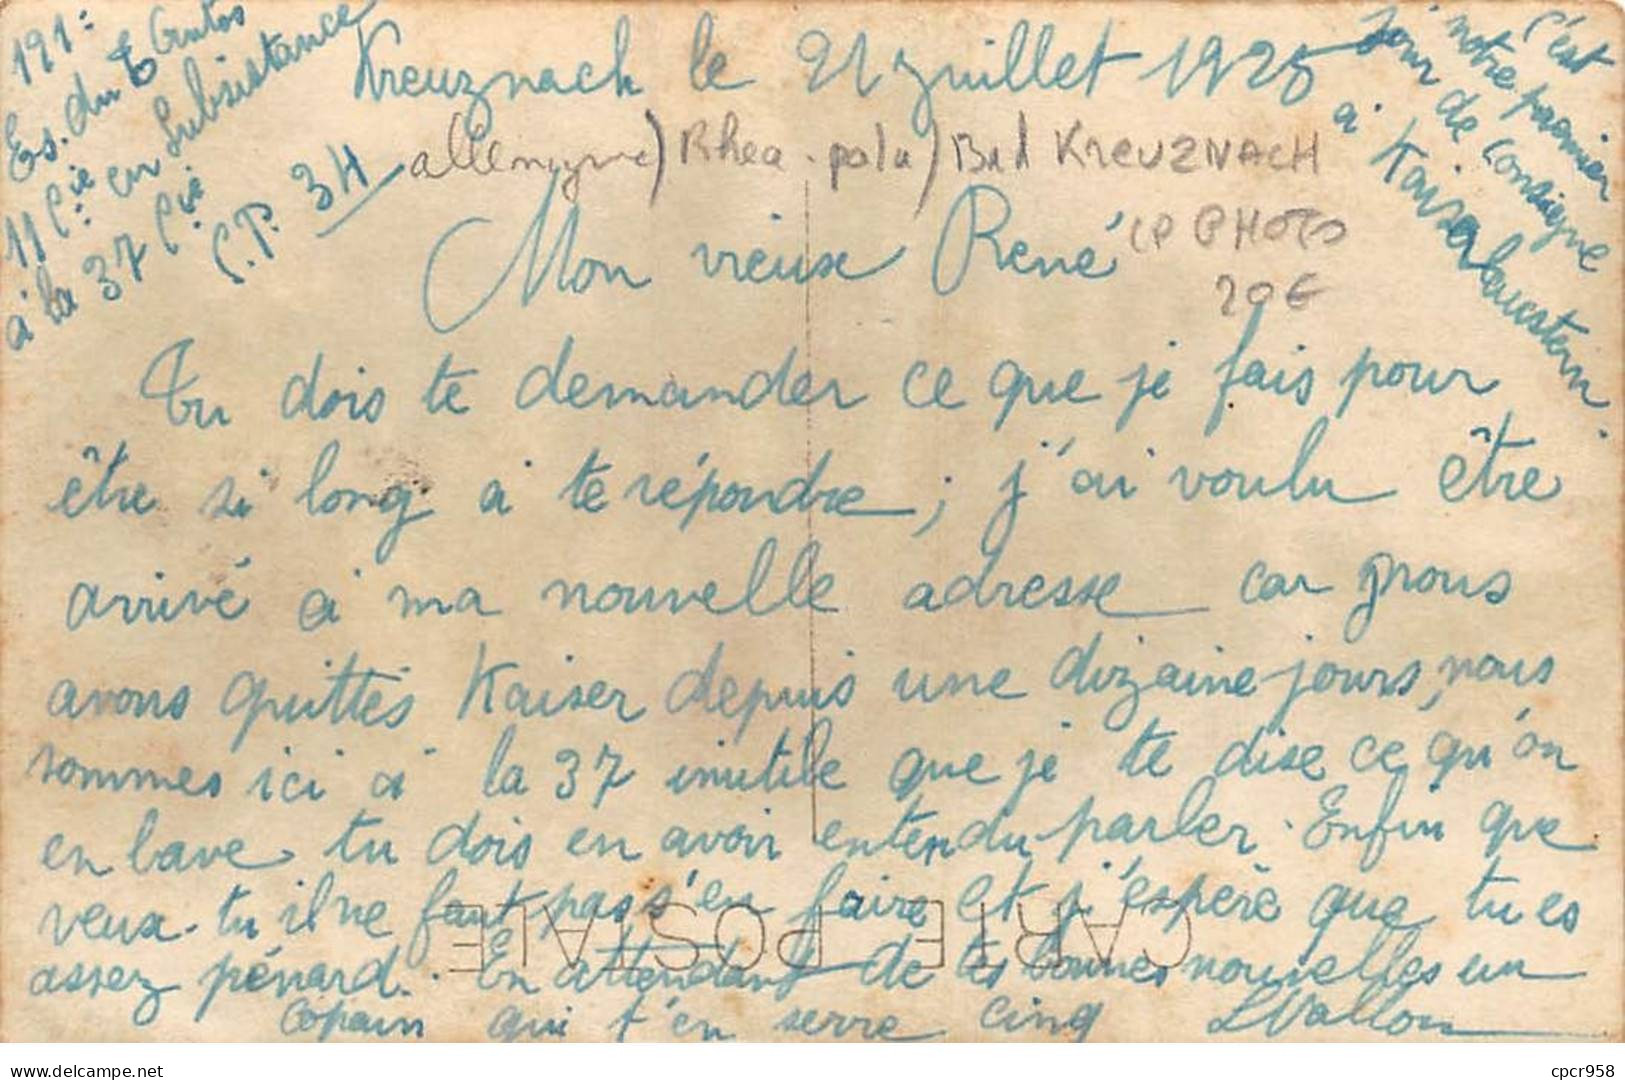 191e
Es. du T Autos
11 Cie en Subsistance
à la 37 Cie
S.P. 34
Kreuznach le 21 juillet 1925
C'est
notre premier
Jour de Consigne
à Kaiserlaustern.
allemagne) Rhea-pala) Bad KREUZNACH
CP PHOTO
20€
Mon vieux René
Tu dois te demander ce que je fais pour
être si long à te répondre; j'ai voulu être
arrivé à ma nouvelle adresse car nous
avons quittés Kaiser depuis une dizaine jours, nous
sommes ici à la 37 inutile que je te dise ce qu'on
en bave tu dois en avoir entendu parler. Enfin que
veux-tu il ne faut pas s'en faire et j'espère que tu es
assez pénard. En attendant de tes bonnes nouvelles un
copain qui t'en serre cinq LVallon
CARTE POSTALE
www.delcampe.net
cpcr958